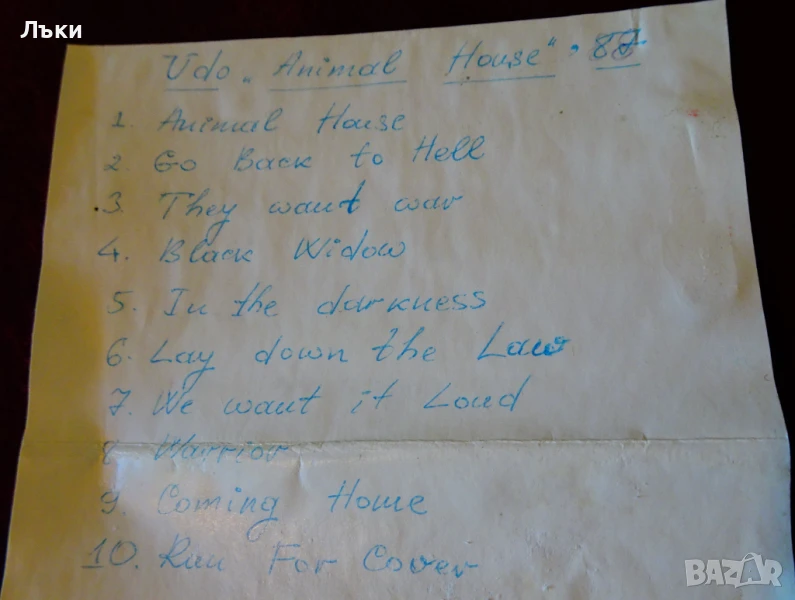 Лъки
Udo „Animal House“
1. Animal House
2. Go Back to Hell
3. They want war
4. Black Widow
5. In the darkness
6. Lay down the Law
7. We want it Loud
8 Warrior
9. Coming Home
10. Run For Cover
BAZAR